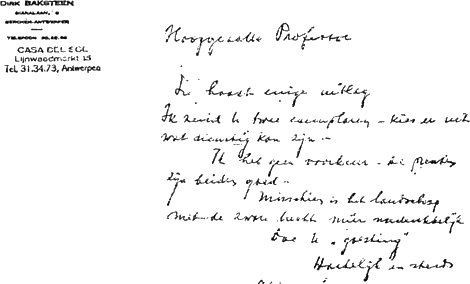 DIRK BAKSTEEN
DIANALAAN, 
BERCHEM-ANTWERPEN
TELEFOON
CASA DEL SOL
Lijnwaadmarkt 13
Tel. 31.34.73, Antwerpen
Hooggeachte Professor
In haast enige uitleg
Ik zend U twee exemplaren - kies er uit
wat dienstig kan zijn -
Ik heb geen voorkeur - de
zijn beiden goed -
Misschien is het landschap
met de zware lucht meer
Doe U "goesting"
Hartelijk en steeds